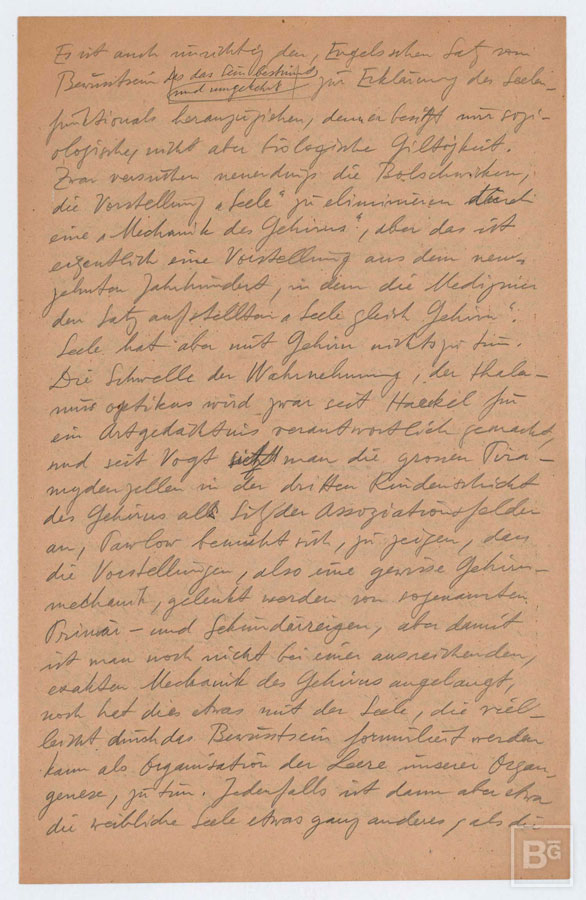 Es ist auch unrichtig den, Engelsschen Satz vom
Bewusstsein das das Sein bestimmt
und umgekehrt zur Erklärung des Seelen-
funktionals heranzuziehen, denn er besitzt nur sozi-
ologische, nicht aber biologische Giltigkeit.
Zwar versuchen neuerdings die Bolschewiken,
die Vorstellung „Seele“ zu eliminieren durch
eine „Mechanik des Gehirns“, aber das ist
eigentlich eine Vorstellung aus dem neun-
zehnten Jahrhundert, in dem die Mediziner
den Satz aufstellten „Seele gleich Gehirn“.
Seele hat aber mit Gehirn nichts zu tun.
Die Schwelle der Wahrnehmung, der Thala-
mus optikus wird zwar seit Haeckel für
ein Artgedächtnis verantwortlich gemacht,
und seit Vogt sieht man die grossen Pira-
mydenzellen in der dritten Rindenschicht
des Gehirns als Sitz der Assoziationsfelder
an, Pawlow bemüht sich, zu zeigen, dass
die Vorstellungen, also eine gewisse Gehirn-
mechanik, gelenkt werden von sogenannten
Primär- und Sekundärreizen, aber damit
ist man noch nicht bei einer ausreichenden,
exakten Mechanik des Gehirns angelangt,
noch hat dies etwas mit der Seele, die viel-
leicht durch das Bewusstsein formuliert werden
kann als Organisation der Leere unserer Organ-
genese, zu tun. Jedenfalls ist dann aber etwa
die weibliche Seele etwas ganz anderes, als die
BG